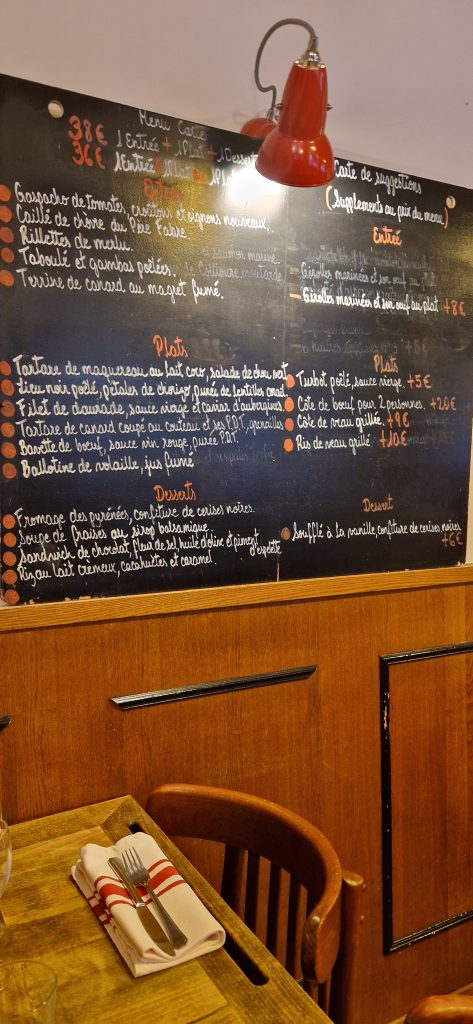 Menu Carte
38€ 1 Entrée + 1 Plat + 1 Dessert
36€ 1 Entrée 1 Plat ou 1 Plat
Entrées
Gaspacho de tomates, croûtons et oignons nouveaux.
Caillé de chèvre du Père Fabre.
Rillettes de merlu.
Taboulé et gambas poêlées.
Terrine de canard au magret fumé.
Plats
Tartare de maquereau au lait coco, salade de chou vert
Lieu noir poêlé, pétales de chorizo, purée de lentilles corail
Filet de daurade, sauce vierge et caviar d'aubergines
Tartare de canard coupé au couteau et ses P.D.T. grenailles
Bavette de boeuf, sauce vin rouge purée P.D.T.
Ballotine de volaille, jus fumé
Desserts
Fromage des pyrénées, confiture de cerises noires.
Soupe de fraises au sirop balsamique.
Sandwich de chocolat, fleur de sel, huile d'olive et piment d'espelette
Riz au lait crémeux, cacahuètes et caramel.
Carte de suggestions
(Supplements au prix du menu)
Entreé
Girolles marinées et son oeuf au plat +8€
Plats
Turbot poêlé, sauce vierge +5€
Côte de boeuf pour 2 personnes +20€
Côte de veau grillée +9€
Ris de veau grillé +10€
Dessert
Soufflé à la vanille, confiture de cerises noires
+6€